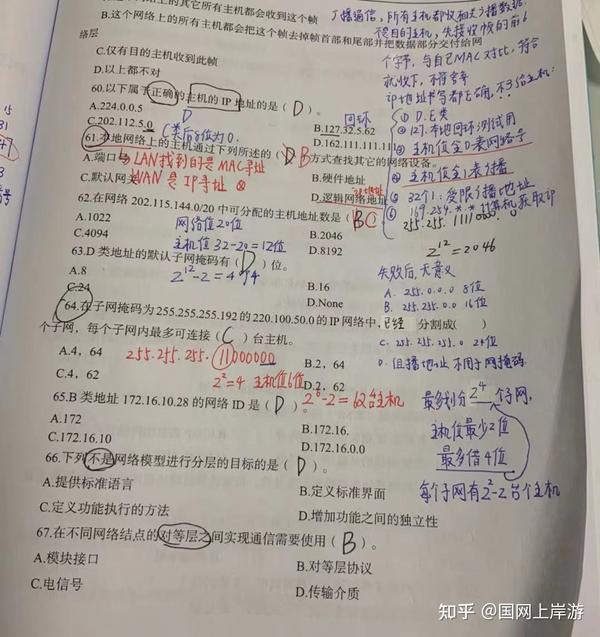 B.这个网络上的所有主机都会把这个帧去掉帧首部和尾部并把数据部分交付给网
络层
C.仅有目的主机收到此帧
D.以上都不对
60.以下属于正确的主机的IP地址的是( D )。
A.224.0.0.5
B.127.32.5.62
回环
C.202.112.5.0
C类后8位为0.
D.162.111.111.111
61.本地网络上的主机通过下列所述的( B )方式查找其它的网络设备。
A.端口号
LAN找到的是MAC寻址
B.硬件地址
C.默认网关
WAN是IP寻址
D.逻辑网络地址
62.在网络202.115.144.0/20中可分配的主机地址数是( C )
A.1022
网络值20位
B.2046
C.4094
主机值32-20=12位
D.8192
63.D类地址的默认子网掩码有( D )位。
A.8
2¹²-2=4094
B.16
C.24
D.None
64.在子网掩码为255.255.255.192的220.100.50.0的IP网络中,已经 分割成( )
个子网,每个子网内最多可连接( C )台主机。
A.4,64
255.255.255.11000000
B.2,64
C.4,62
2²=4 主机值6位
D.2,62
65.B类地址172.16.10.28的网络ID是( D )。
2⁶-2=62台主机
A.172
B.172.16.
C.172.16.10
D.172.16.0.0
66.下列不是网络模型进行分层的目标的是( D )。
A.提供标准语言
B.定义标准界面
C.定义功能执行的方法
D.增加功能之间的独立性
67.在不同网络结点的对等层之间实现通信需要使用( B )。
A.模块接口
B.对等层协议
C.电信号
D.传输介质
字节,与自己MAC对比,符合
就收下,不符弃
① D.E类
② 127.本地回环测试用
③ 主机值全0表网络号
④ 主机值全1表广播
⑤ 32个1:受限广播地址
⑥ 169.254.*.*
2¹²=2046
失败后,无意义
A. 255.0.0.0 8位
B. 255.255.0.0 16位
C. 255.255.255.0 24位
D. 组播地址不用子网掩码
最多划分2⁴个子网,
主机值最少2位
最多借4位
每个子网有2²-2台个主机
知乎 @国网上岸游